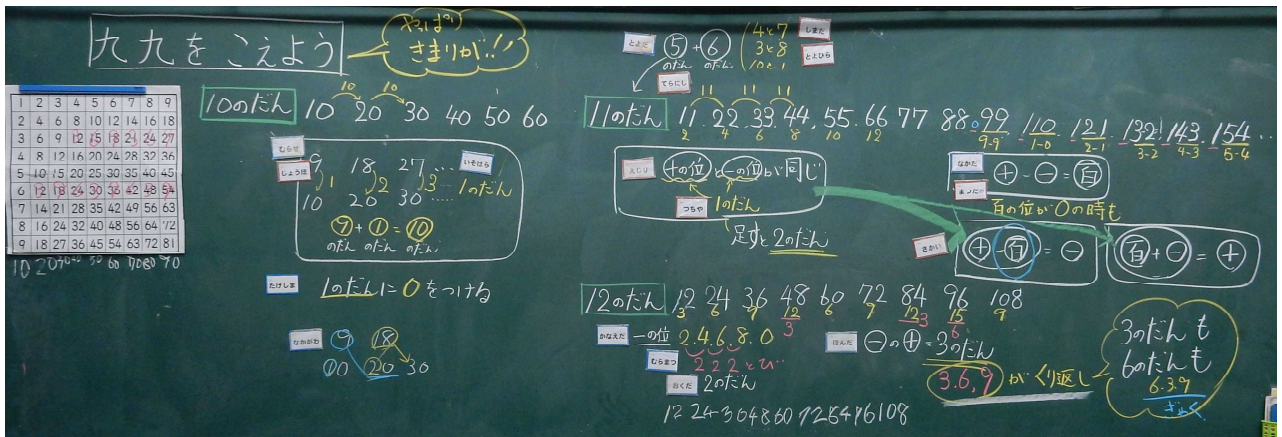 九九をこえよう
やっぱり
きまりが!!
1 2 3 4 5 6 7 8 9
2 4 6 8 10 12 14 16 18
3 6 9 12 15 18 21 24 27
4 8 12 16 20 24 28 32 36
5 10 15 20 25 30 35 40 45
6 12 18 24 30 36 42 48 54
7 14 21 28 35 42 49 56 63
8 16 24 32 40 48 56 64 72
9 18 27 36 45 54 63 72 81
10 20 30 40 50 60 70 80 90
10 10
10のだん 10 20 30 40 50 60
むらせ
しょうほ
いそはら
9 18 27 ....
1 2 3 ... 1のだん
10 20 30 .....
⑨+①=⑩
のだん のだん のだん
たけしま
1のだんに0をつけね
なかがわ
9 18
10 20 30
とよだ
⑤+⑥
のだん のだん
4と7
3と8
10と1
しまだ
とよひら
てらにし
11 11 11
11のだん 11.22.33.44.55.66 77 88 99 110 121 132 143 154 ...
2 4 6 8 10 12 9-9 1-0 2-1 3-2 4-3 5-4
十の位と一の位が同じ
つちや
1のだん
足すと2のだん
なかだ
十 - 一 = 百
百の位が0の時も
さかい
十 百 = 一
百 + 一 = 十
12のだん 12 24 36 48 60 72 84 96 108
3 6 9 12 6 9 12 15 9
3 3 6
かなえだ
一の位 2.4.6.8.0
むらまつ
2 2 2 とび..
おくだ
2のだん
12 24 36 48 60 72 84 96 108
ほんだ
一の十=3のだん
3.6.9がくり返し
3のだんも
6のだんも
6.3.9
ぎゃく